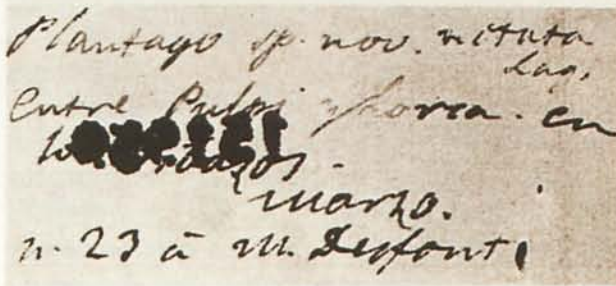 Plantago sp. nov. victata
Lag.
Entre Pulpi y Lorca. en
marzo.
n. 23 a M. Desfont